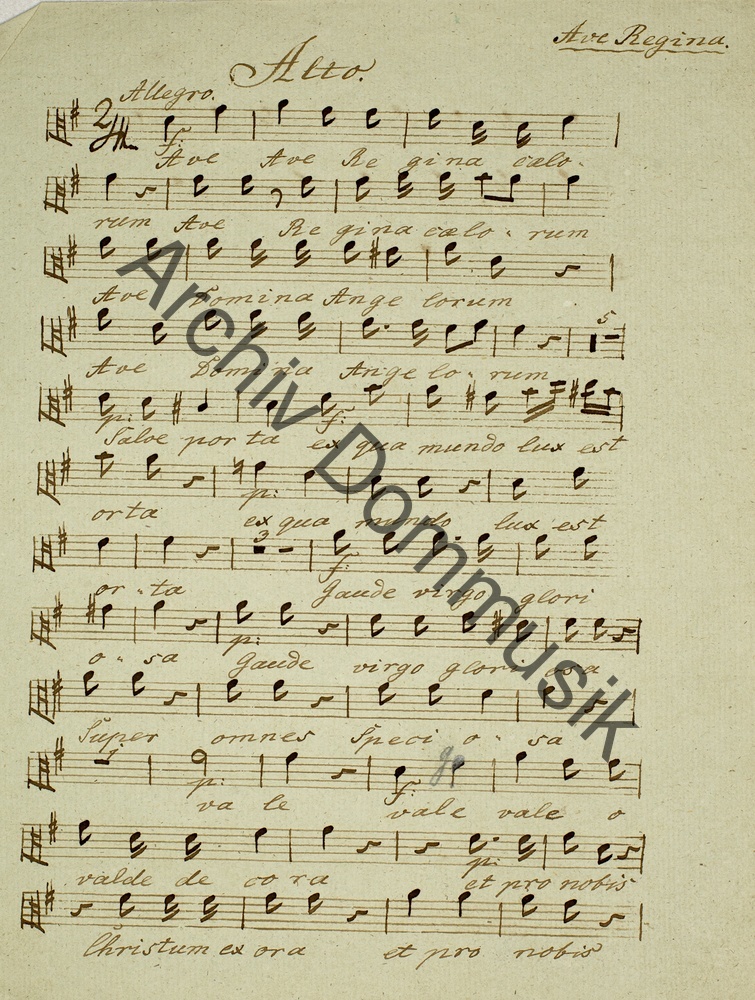 Ave Regina.
Alto.
Allegro.
2
f:
Ave Ave Re gina cælo-
rum Ave Re gina cælo - rum
Ave Domina Ange lorum
5
Ave Domina Ange lo - rum
p: f:
Salve por ta ex qua mundo lux est
p:
orta ex qua mundo lux est
3
f:
or - ta Gaude virgo glori
p:
o - sa Gaude virgo glori osa
Super omnes Speci o - sa
1
p: f:
va le vale vale o
p:
valde de co ra et pro nobis
Christum ex ora et pro nobis
Archiv Dommusik